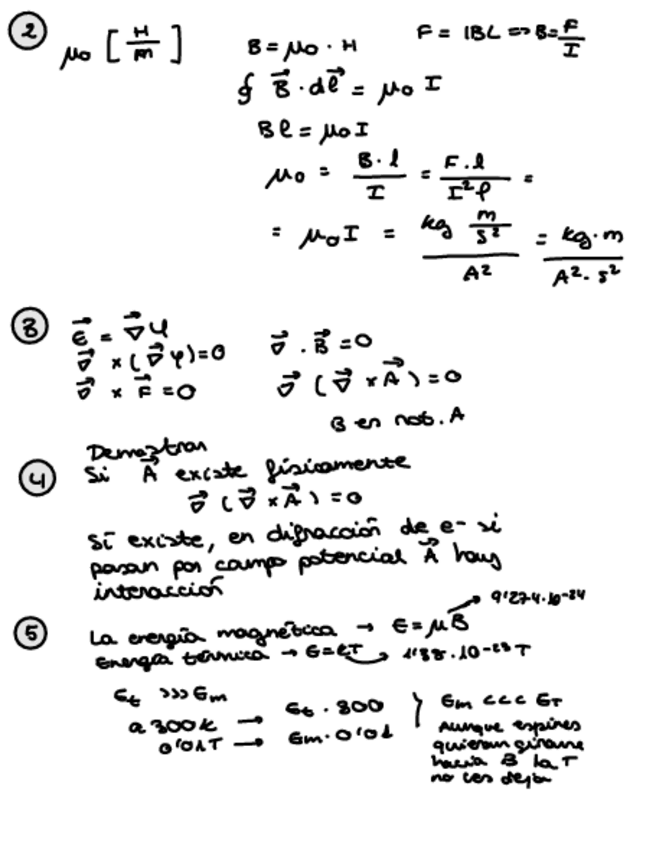 2
μ₀ [H/m]
B = μ₀ · H
F = IBL => B = F/I
∮ B⃗ · dl⃗ = μ₀ I
Bl = μ₀ I
μ₀ = B·l/I = F·l/I²l =
= μ₀I = kg m/s² / A² = kg·m / A²·s²
3
E⃗ = ∇⃗φ
∇⃗ × (∇⃗φ) = 0
∇⃗ × F⃗ = 0
∇⃗ · B⃗ = 0
∇⃗ (∇⃗ × A⃗) = 0
B es rot. A
Demostrar
4
Si A⃗ existe físicamente
∇⃗ (∇⃗ × A⃗) = 0
Sí existe, en difracción de e- si
pasan por campo potencial A⃗ hay
interacción
5
La energía magnética → E = μB → 9'274·10⁻²⁴
Energía térmica → E = kT → 1'38·10⁻²³ T
Et >>> Em
a 300k → Et · 300
0'01T → Em · 0'01
Em <<< ET
Aunque espines
quieran girarse
hacia B la T
no les deja